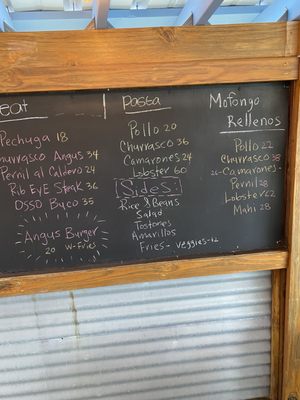 eat
Pechuga 18
hurrasco Angus 34
Pernil al Caldero 24
Rib EyE Steak 36
Osso Buco 35
Angus Burger
20 W-Fries
Pasta
Pollo 20
Churrasco 36
Camarones 24
Lobster 60
Sides:
Rice & Beans
Salad
Tostones
Amarillos
Fries- veggies-$2
Mofongo
Rellenos
Pollo 22
Churrasco 38
26-Camarones-
Pernil 28
Lobster 62
Mahi 28